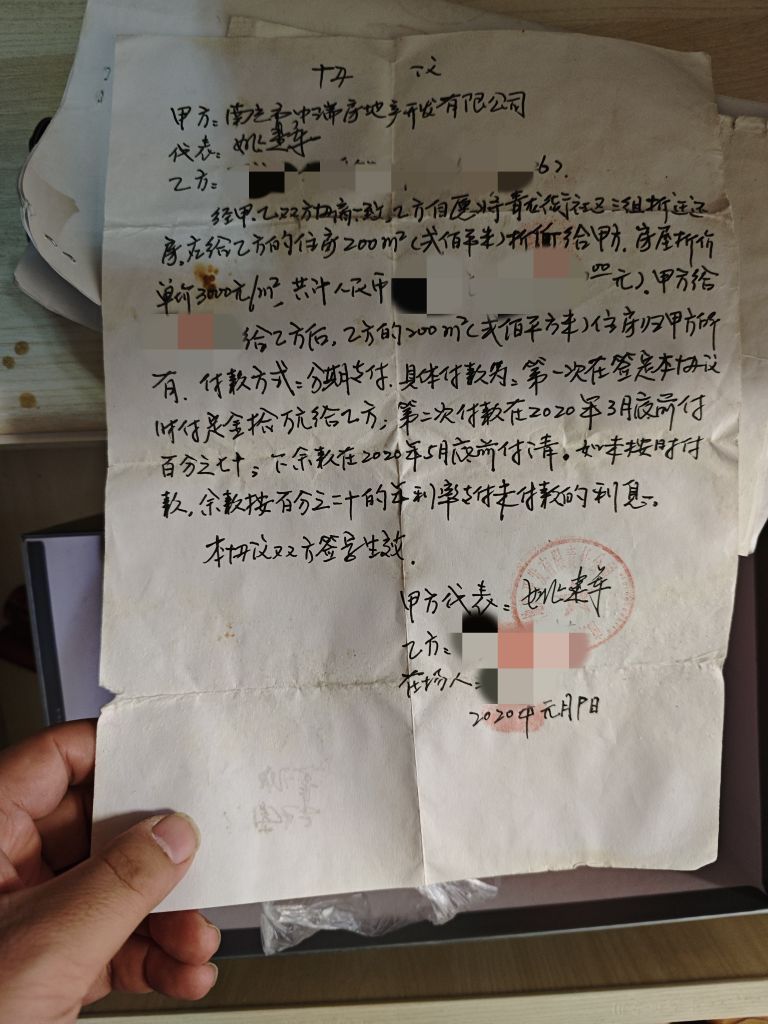 协 议
甲方：南充市中瑞房地产开发有限公司
代表：姚建军
乙方：
经甲、乙双方协商一致，乙方自愿将青龙街社区三组拆迁还
房，应给乙方的住房200m²（贰佰平米）折价给甲方，房屋折价
单价3000元/m²，共计人民币 00元），甲方给
给乙方后，乙方的200m²（贰佰平方米）住房归甲方所
有，付款方式：分期支付，具体付款为：第一次在签定本协议
时付定金拾万元给乙方；第二次付款在2020年3月底前付
百分之七十；下余款在2020年5月底前付清。如未按时付
款，余款按百分之二十的年利率支付未付款的利息。
本协议双方签字生效。
甲方代表：姚建军
乙方：
在场人：
2020年元月9日